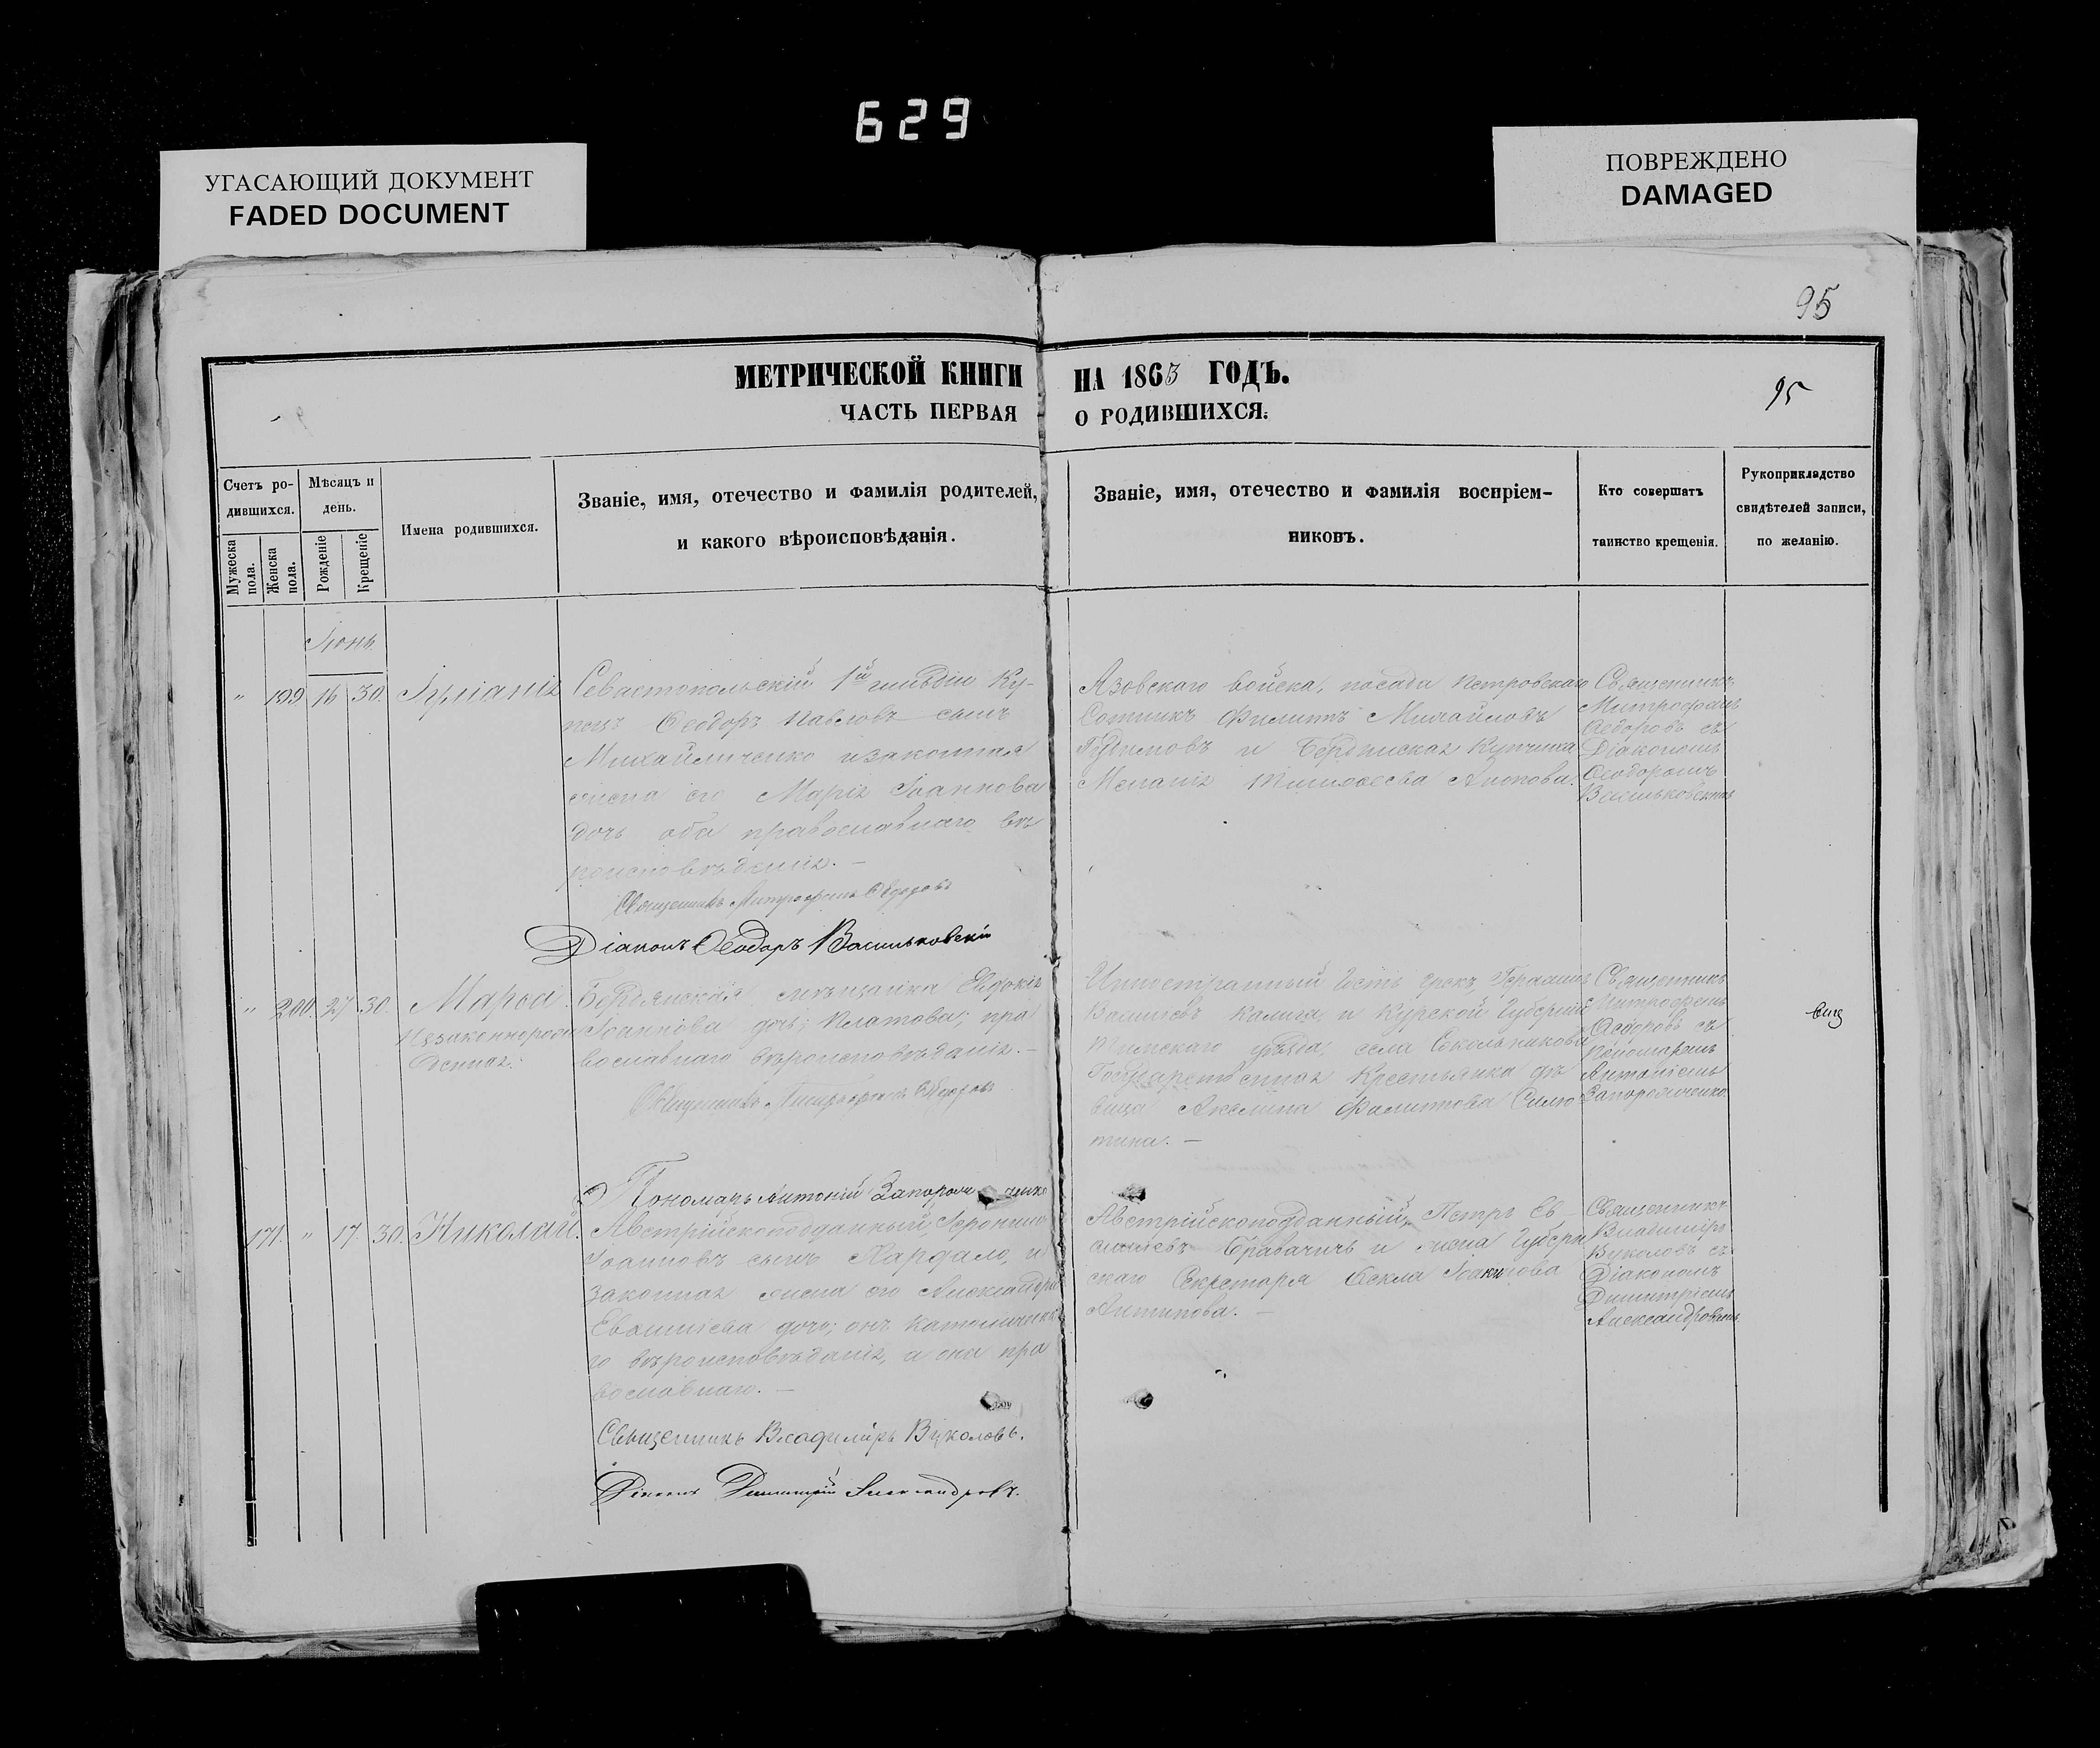 629
УГАСАЮЩИЙ ДОКУМЕНТ
FADED DOCUMENT
ПОВРЕЖДЕНО
DAMAGED
95
МЕТРИЧЕСКОЙ КНИГИ НА 1863 ГОДЪ.
95
ЧАСТЬ ПЕРВАЯ О РОДИВШИХСЯ.
Счетъ ро-
дившихся.
Мужеска пола.
Женска пола.
Мѣсяцъ и
день.
Рожденіе
Крещеніе
Имена родившихся.
Званіе, имя, отечество и фамилія родителей,
и какого вѣроисповѣданія.
Званіе, имя, отечество и фамилія воспріем-
никовъ.
Кто совершатъ
таинство крещенія.
Рукоприкладство
свидѣтелей записи,
по желанію.
Іюнь.
" 199 16 30.
Севастопольскій 1й гильдіи Ку-
пецъ Ѳеодоръ Павловъ сынъ
Михайличенко и законная
жена его Марія Іоаннова
дочь оба православнаго вѣ
роисповѣданія. —
Священникъ Митрофанъ Ѳедоровъ
Діаконъ Ѳеодоръ Васильковскій
Азовскаго войска, посада Петровскаго
Сотникъ Филиппъ Михайловъ
и Бердянская Купчиха
Меланія Тимоѳеева
Священникъ
Митрофанъ
Ѳедоровъ съ
Діакономъ
Ѳеодоромъ
Васильковскимъ
" 200. 27 30. Марѳа
Незаконнорож
денная.
Бердянская мѣщанка Евдокія
Іоаннова дочь; Платова; пра
вославнаго вѣроисповѣданія. —
Священникъ Митрофанъ Ѳедоровъ
Пономарь Антоній
Иностранный Гость грекъ
Васильевъ и Курской Губерніи
Тимского уѣзда, села
Государственная Крестьянка дѣ
вица Акелина Филиппова
тина. —
Священникъ
Митрофанъ
Ѳедоровъ съ
Пономаремъ
Антоніемъ
171. " 17. 30. Николай.
Австрійскоподданный, Іеронимъ
Іоанновъ сынъ и
законная жена его Александра
дочь; онъ католическа
го вѣроисповѣданія, а она пра
вославнаго. —
Священникъ Владиміръ Вуколовъ.
Діаконъ Димитрій Александровъ.
Австрійскоподданный, Петръ Ев
и жена Губерн
скаго Секретаря Ѳекла
Антипова. —
Священникъ
Владиміръ
Вуколовъ съ
Діакономъ
Димитріемъ
Александровымъ